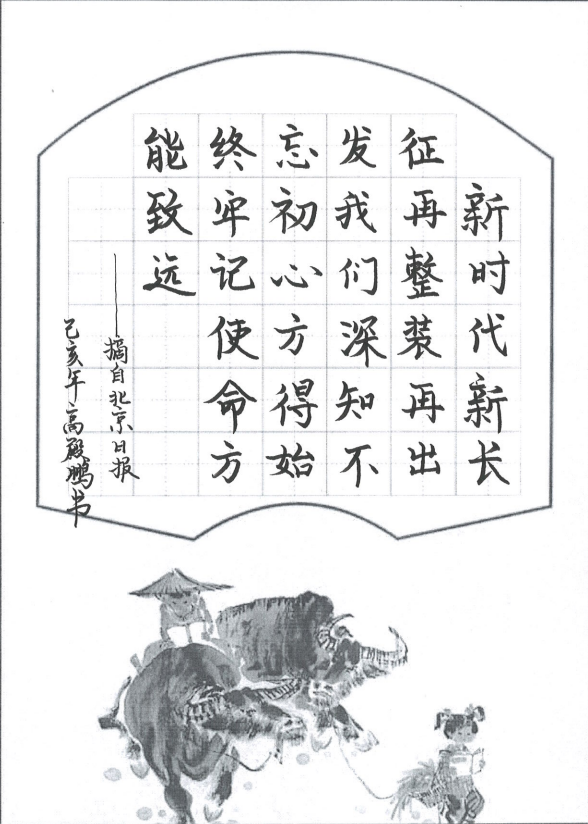 新时代新长
征再整装再出
发我们深知不
忘初心方得始
终牢记使命方
能致远
——摘自北京日报
己亥年高殿鹏书